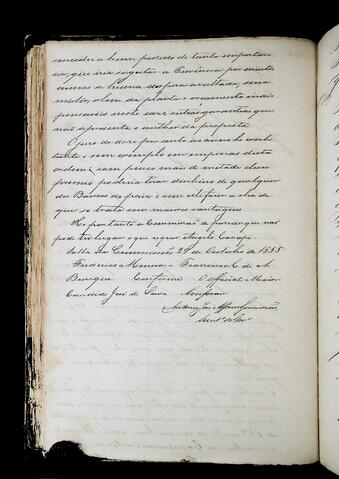 conceder a hum pedido de tanta importan
cia, que iria sugeitar a Provincia por muitos
annos a huma despesa avultada, sem
outra, alem da planta e orcamento indis
pensaveis neste caso, outras garantias que
nao apresenta o author da proposta.
O juro de doze por cento ao anno he exorbi
tante e sem exemplo em emprezas desta
ordem; com pouco mais de metade desse
premio poderia tirar dinheiro de qualquer
dos Bancos do paiz e com elle fazer a obra de
que se trata com maiores vantagens
He portanto a Commissão de parecer que nao
pode ter lugar o que requer Angelo
Salla das Commissões 29 de Outubro de 1855
Frederico Francisco de A.
Conforme O Official Maior
Candido José de
Antonio José Affonso Guimarães